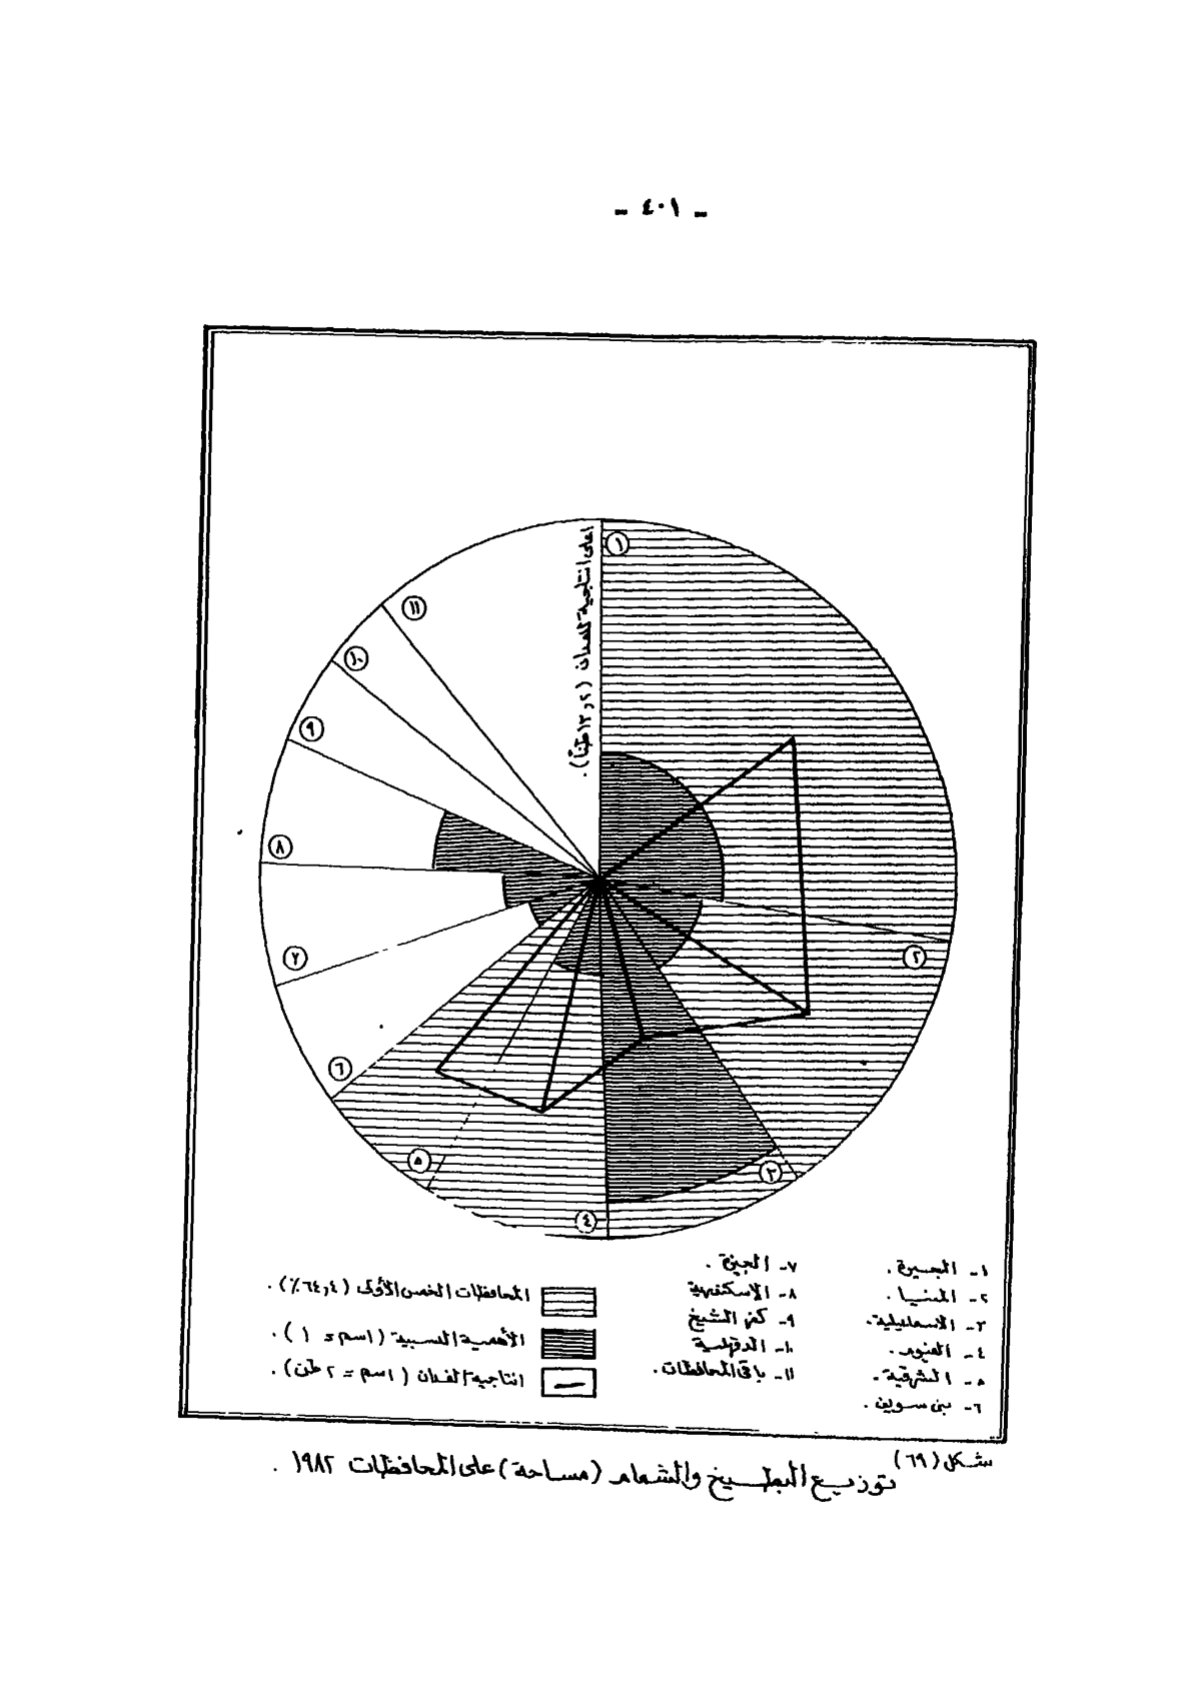 - ٤٠١ -
١
اعلى انتاجية للفدان (١٣,٢ طناً).
١١
١٠
٩
٨
٢
٧
٦
٥
٣
٤
١- البحيرة.
٢- المنيا.
٣- الاسماعيلية.
٤- الفيوم.
٥- الشرقية.
٦- بنى سويف.
٧- الجيزة.
٨- الاسكندرية
٩- كفر الشيخ
١٠- الدقهلية
١١- باقى المحافظات.
المحافظات الخمس الأولى (٦٤,٤٪).
الأهمية النسبية (١سم = ١).
انتاجية الفدان (١سم = ٢ طن).
شكل (٦٩)
توزيع البطيخ والشمام (مساحة) على المحافظات ١٩٨٢.